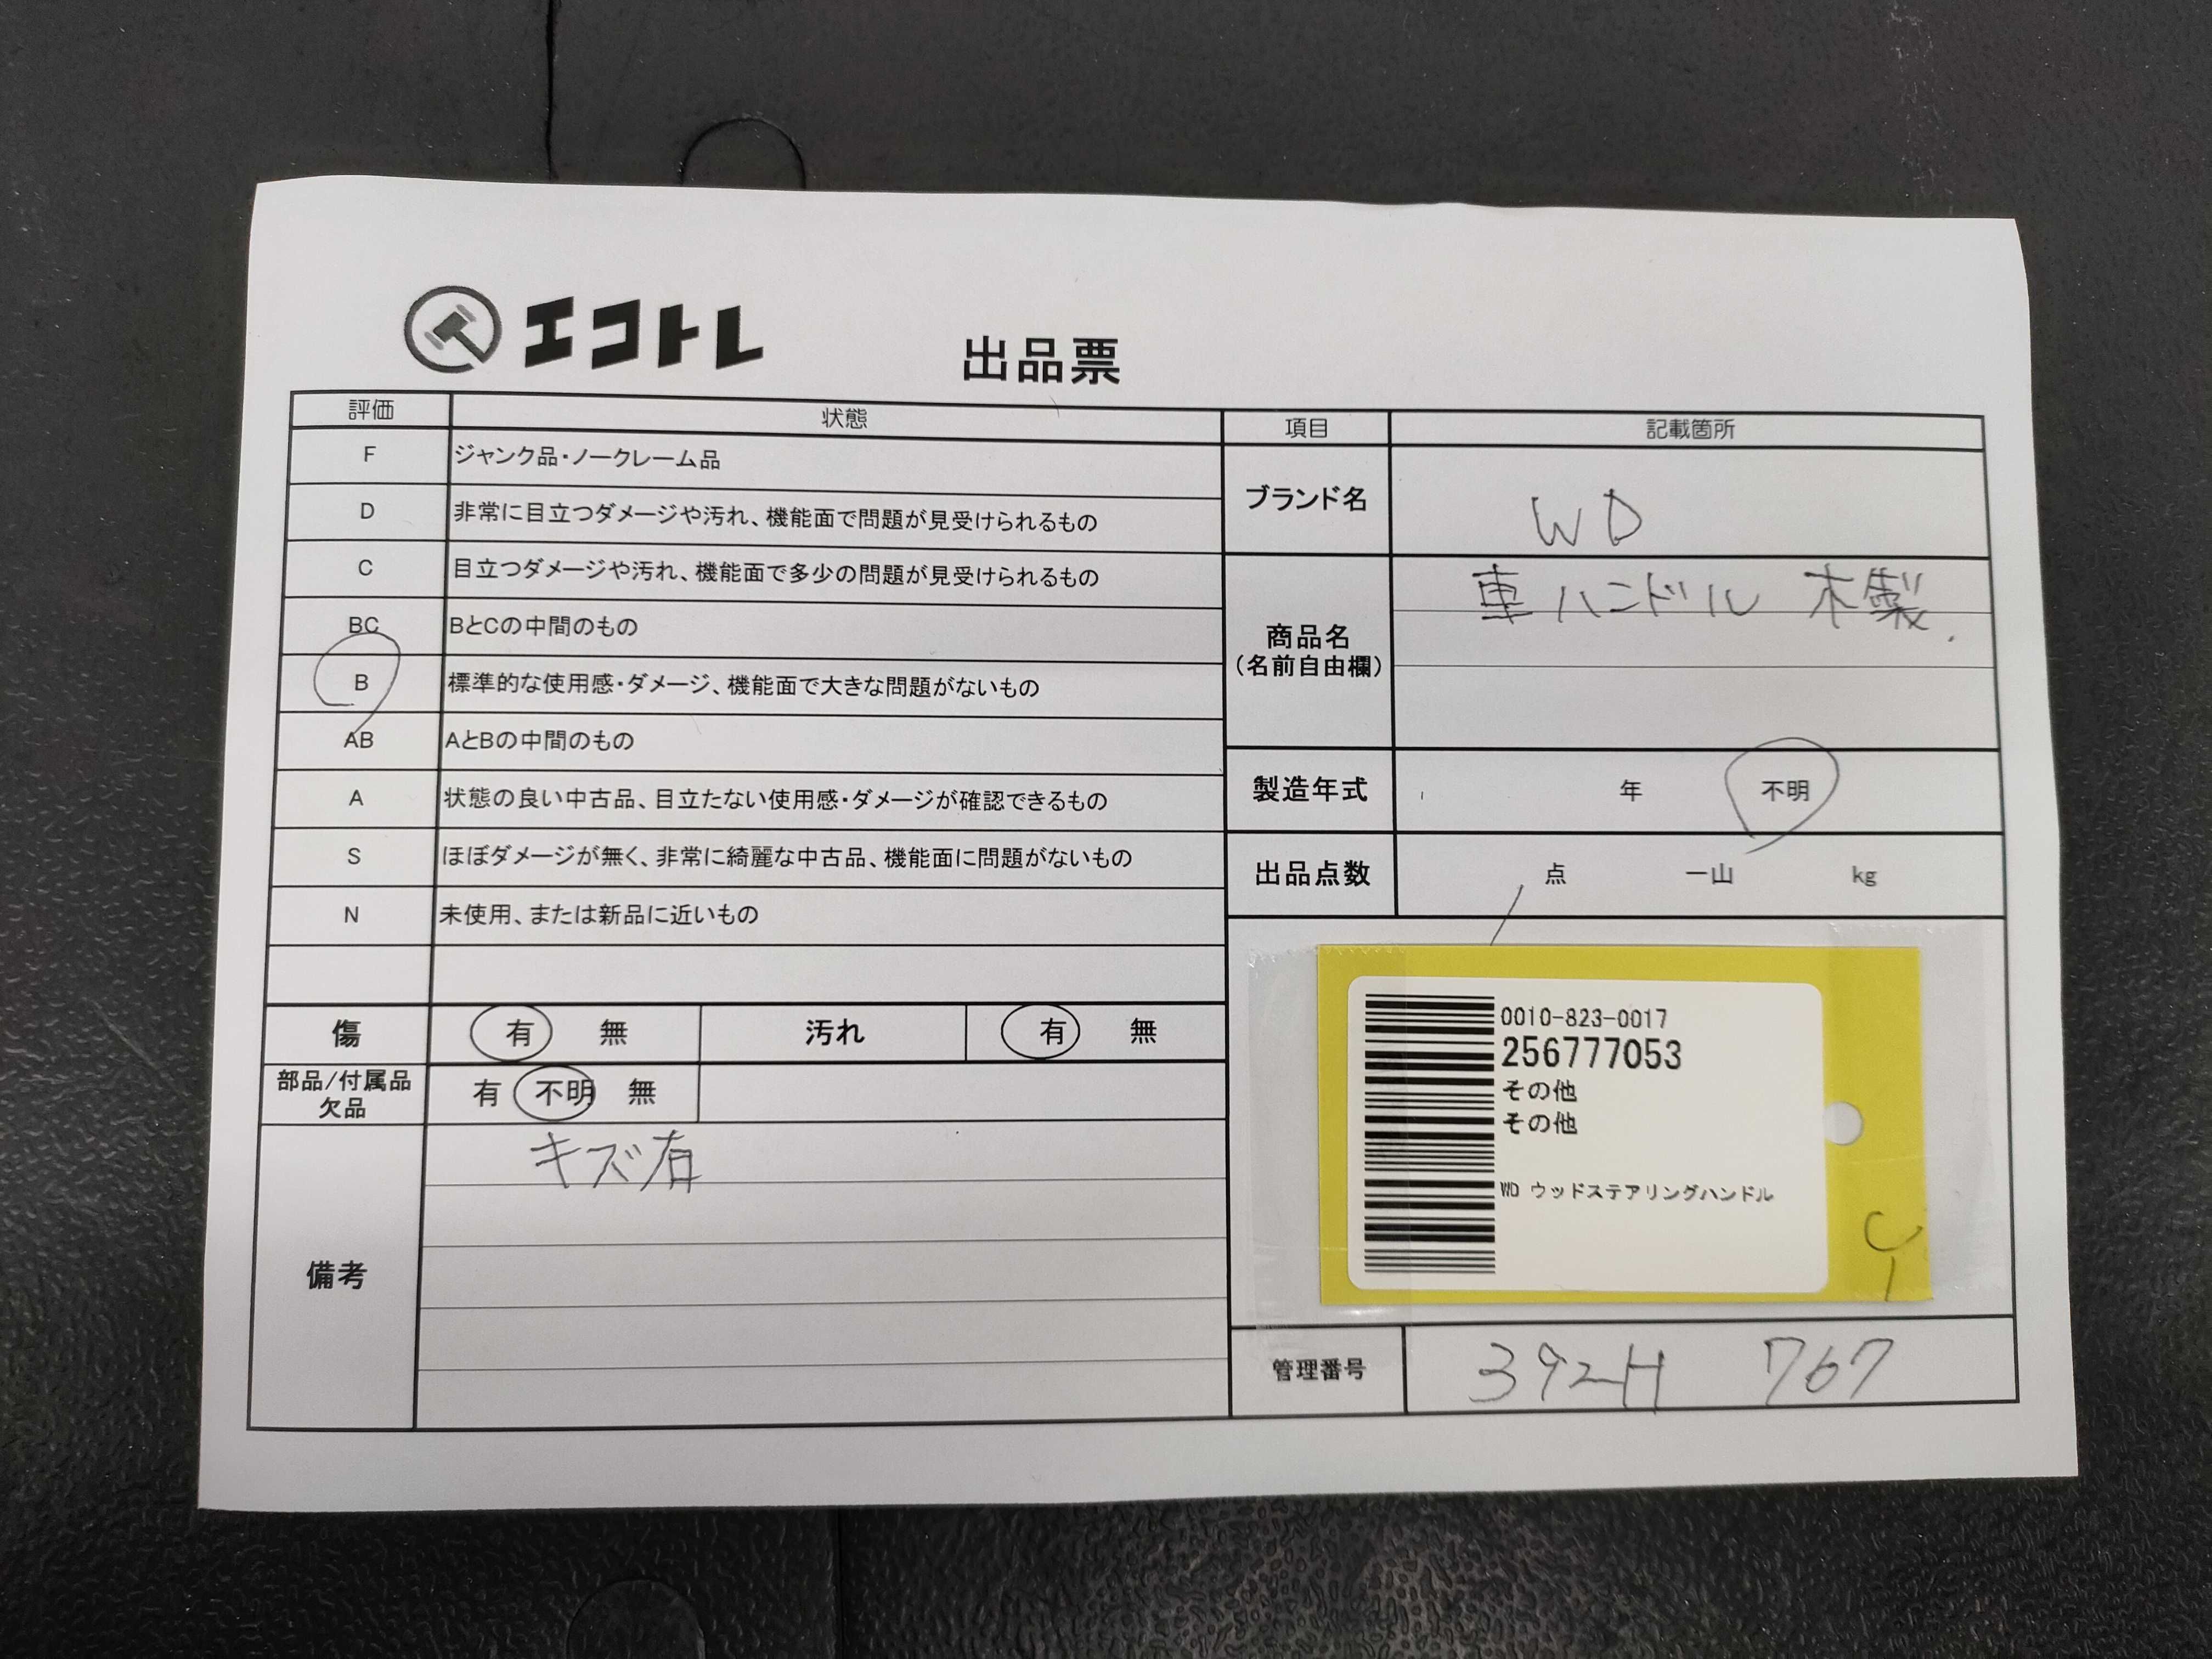 エコトレ
出品票
評価 状態
F ジャンク品・ノークレーム品
D 非常に目立つダメージや汚れ、機能面で問題が見受けられるもの
C 目立つダメージや汚れ、機能面で多少の問題が見受けられるもの
BC BとCの中間のもの
B 標準的な使用感・ダメージ、機能面で大きな問題がないもの
AB AとBの中間のもの
A 状態の良い中古品、目立たない使用感・ダメージが確認できるもの
S ほぼダメージが無く、非常に綺麗な中古品、機能面に問題がないもの
N 未使用、または新品に近いもの
傷 有 無 汚れ 有 無
部品/付属品
欠品 有 不明 無
備考 キズ有
項目 記載箇所
ブランド名 WD
商品名
(名前自由欄)
車ハンドル 木製.
製造年式 年 不明
出品点数 点 一山 kg
0010-823-0017
256777053
その他
その他
WD ウッドステアリングハンドル
管理番号 392H 767